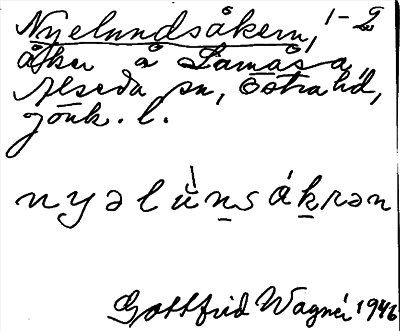 Nyelundsåkern, 1-2
åker å Lamåsa,
Alseda sn, Östra hd,
Jönk. l.
nyəlùnsákrən
Gottfrid Wagnér 1946